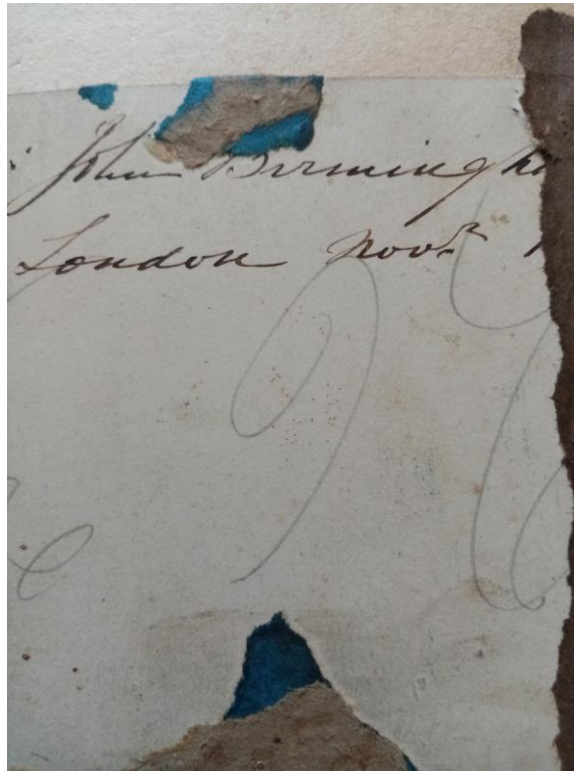 John Birmingha
London Novr 1